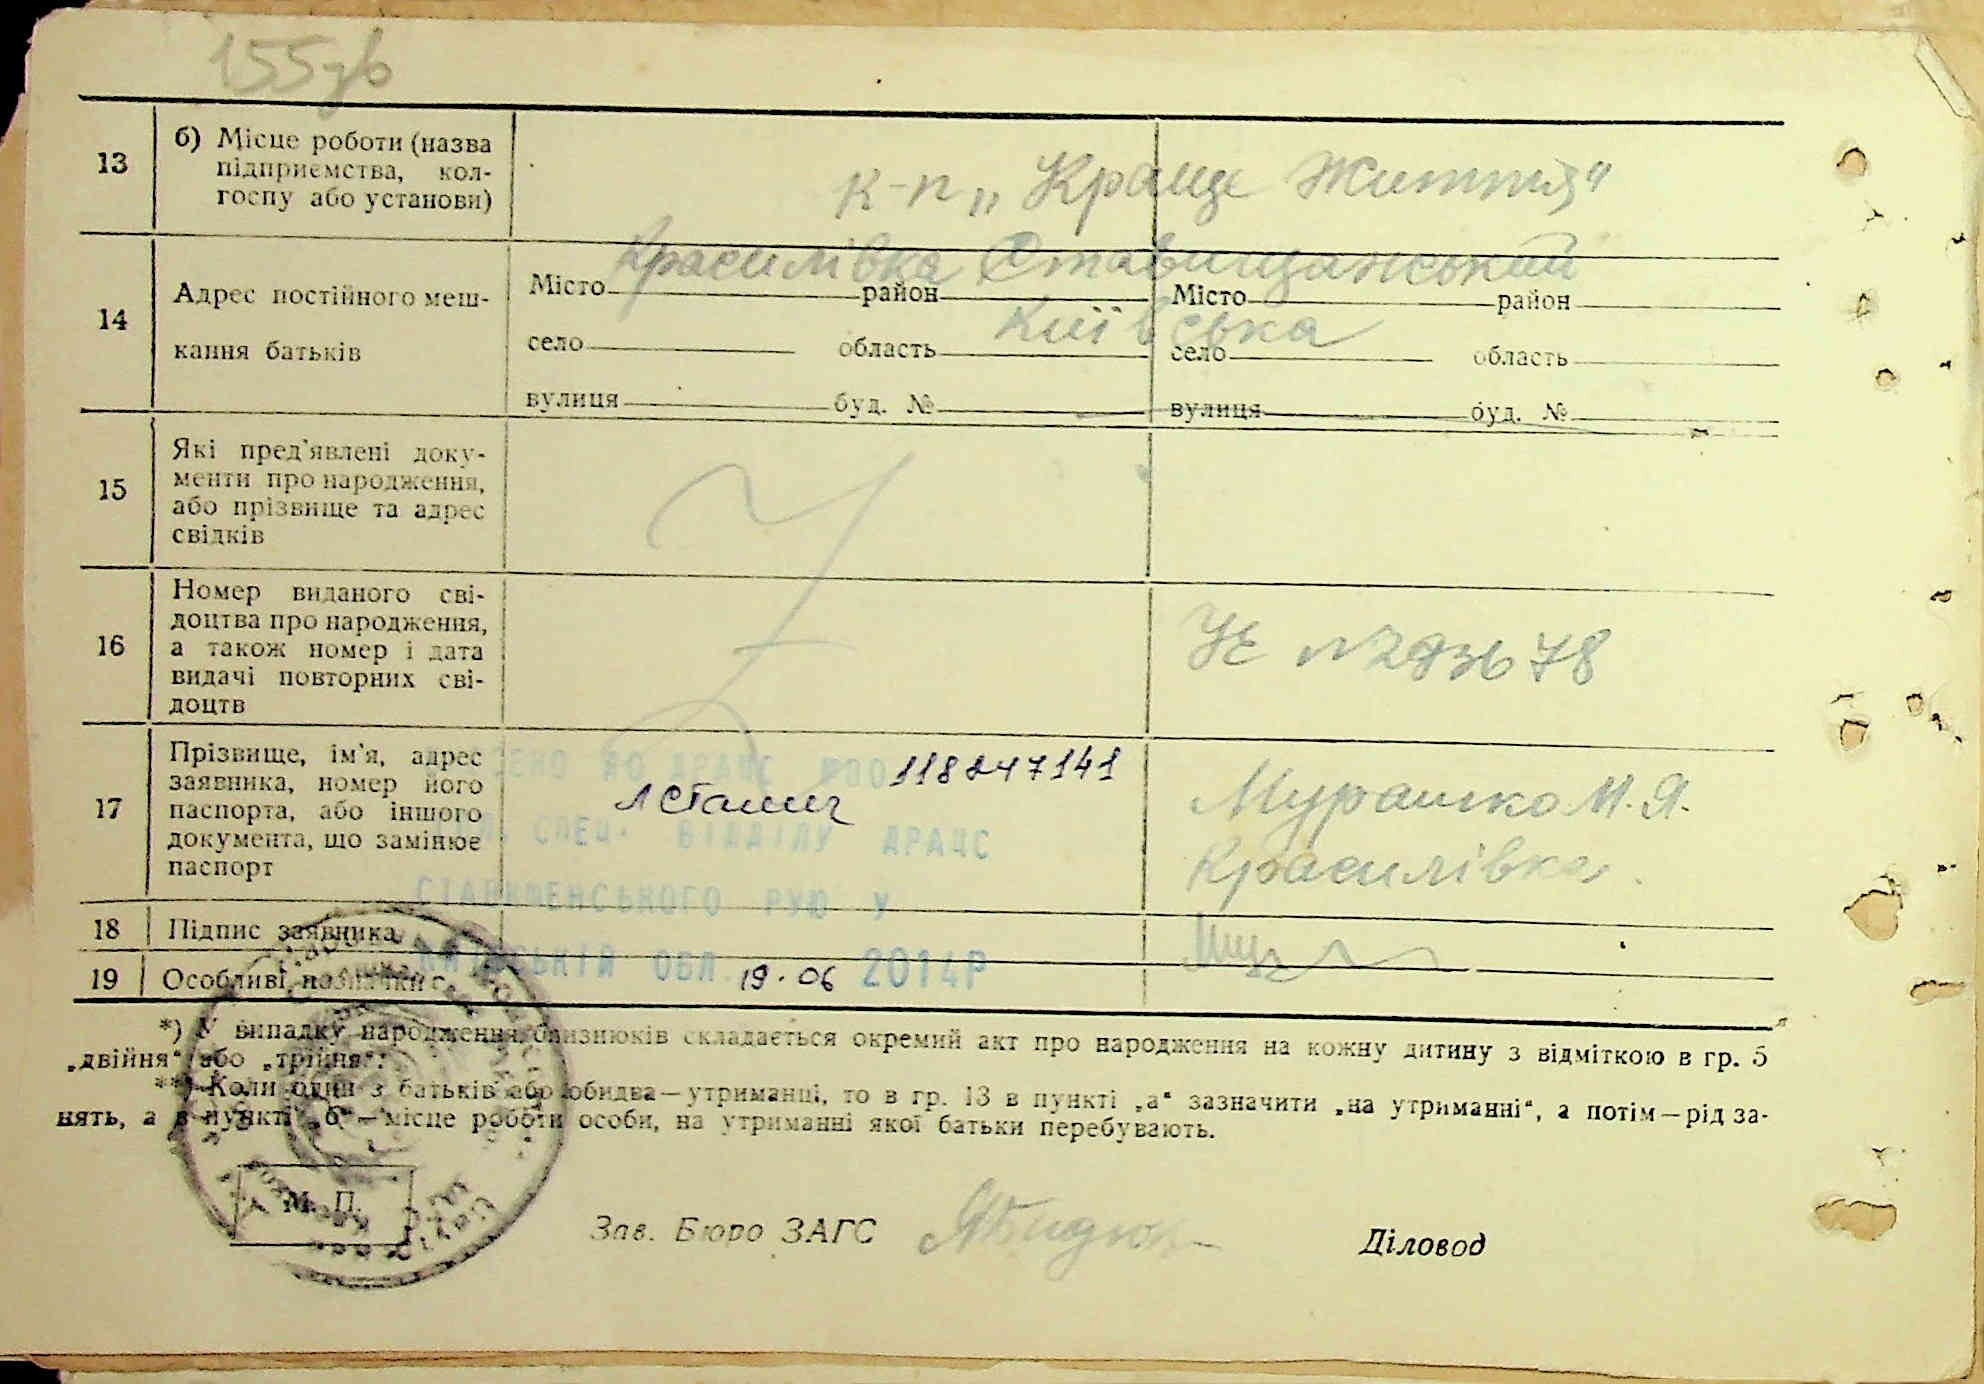 155зв
13
б) Місце роботи (назва
підприємства, кол-
госпу або установи)
к-п „Краще Життя"
14
Адрес постійного меш-
кання батьків
Красилівка Ставищанський
Місто район Місто район
Київська
село область село область
вулиця буд. № вулиця буд. №
15
Які пред'явлені доку-
менти про народження,
або прізвище та адрес
свідків
16
Номер виданого сві-
доцтва про народження,
а також номер і дата
видачі повторних сві-
доцтв
17
Прізвище, ім'я, адрес
заявника, номер його
паспорта, або іншого
документа, що замінює
паспорт
ДО ДРАЦС 118247141
СПЕЦ. ВІДДІЛУ ДРАЦС
СТАВИЩЕНСЬКОГО РУЮ У
КИЇВСЬКІЙ ОБЛ. 19.06 2014Р
Мурашко М.Я.
Красилівка.
18 Підпис заявника
19 Особливі позначки
*) У випадку народження близнюків складається окремий акт про народження на кожну дитину з відміткою в гр. 5
„двійня" або „трійня".
**) Коли один з батьків або обидва—утриманці, то в гр. 13 в пункті „а" зазначити „на утриманні", а потім—рід за-
нять, а в пункті „б"—місце роботи особи, на утриманні якої батьки перебувають.
М. П.
Зав. Бюро ЗАГС
Діловод